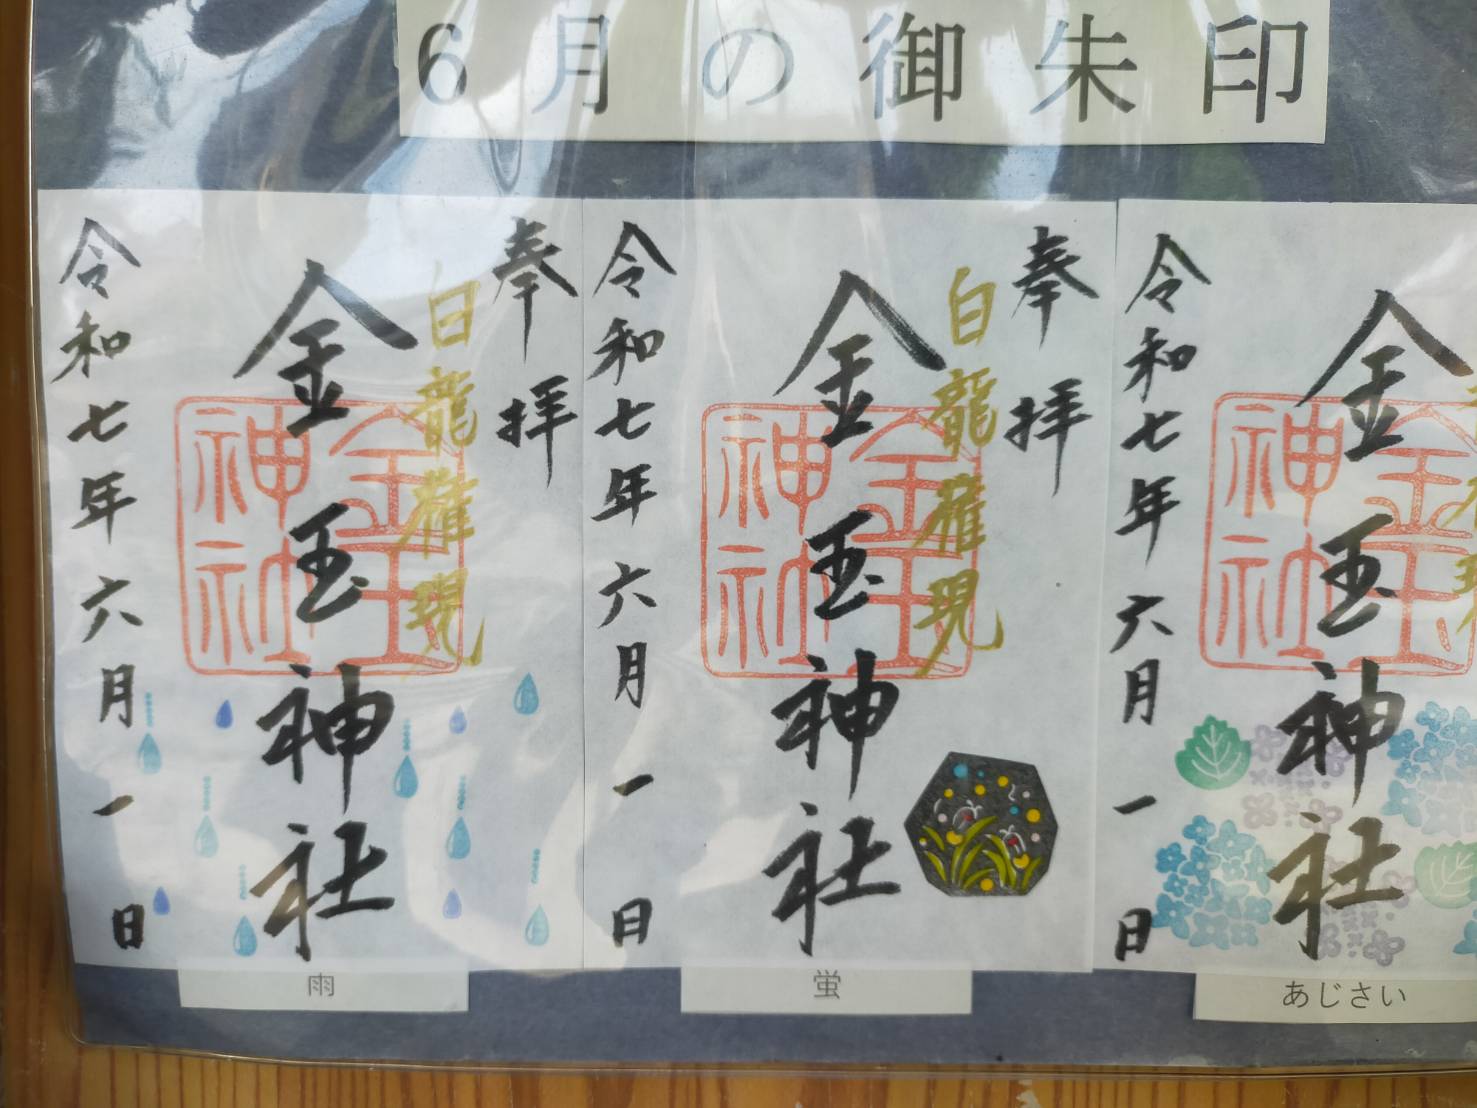 6月の御朱印
奉拝
白龍権現
金玉神社
金玉神社
令和七年六月一日
雨
奉拝
白龍権現
金玉神社
金玉神社
令和七年六月一日
蛍
金玉神社
金玉神社
令和七年六月一日
あじさい